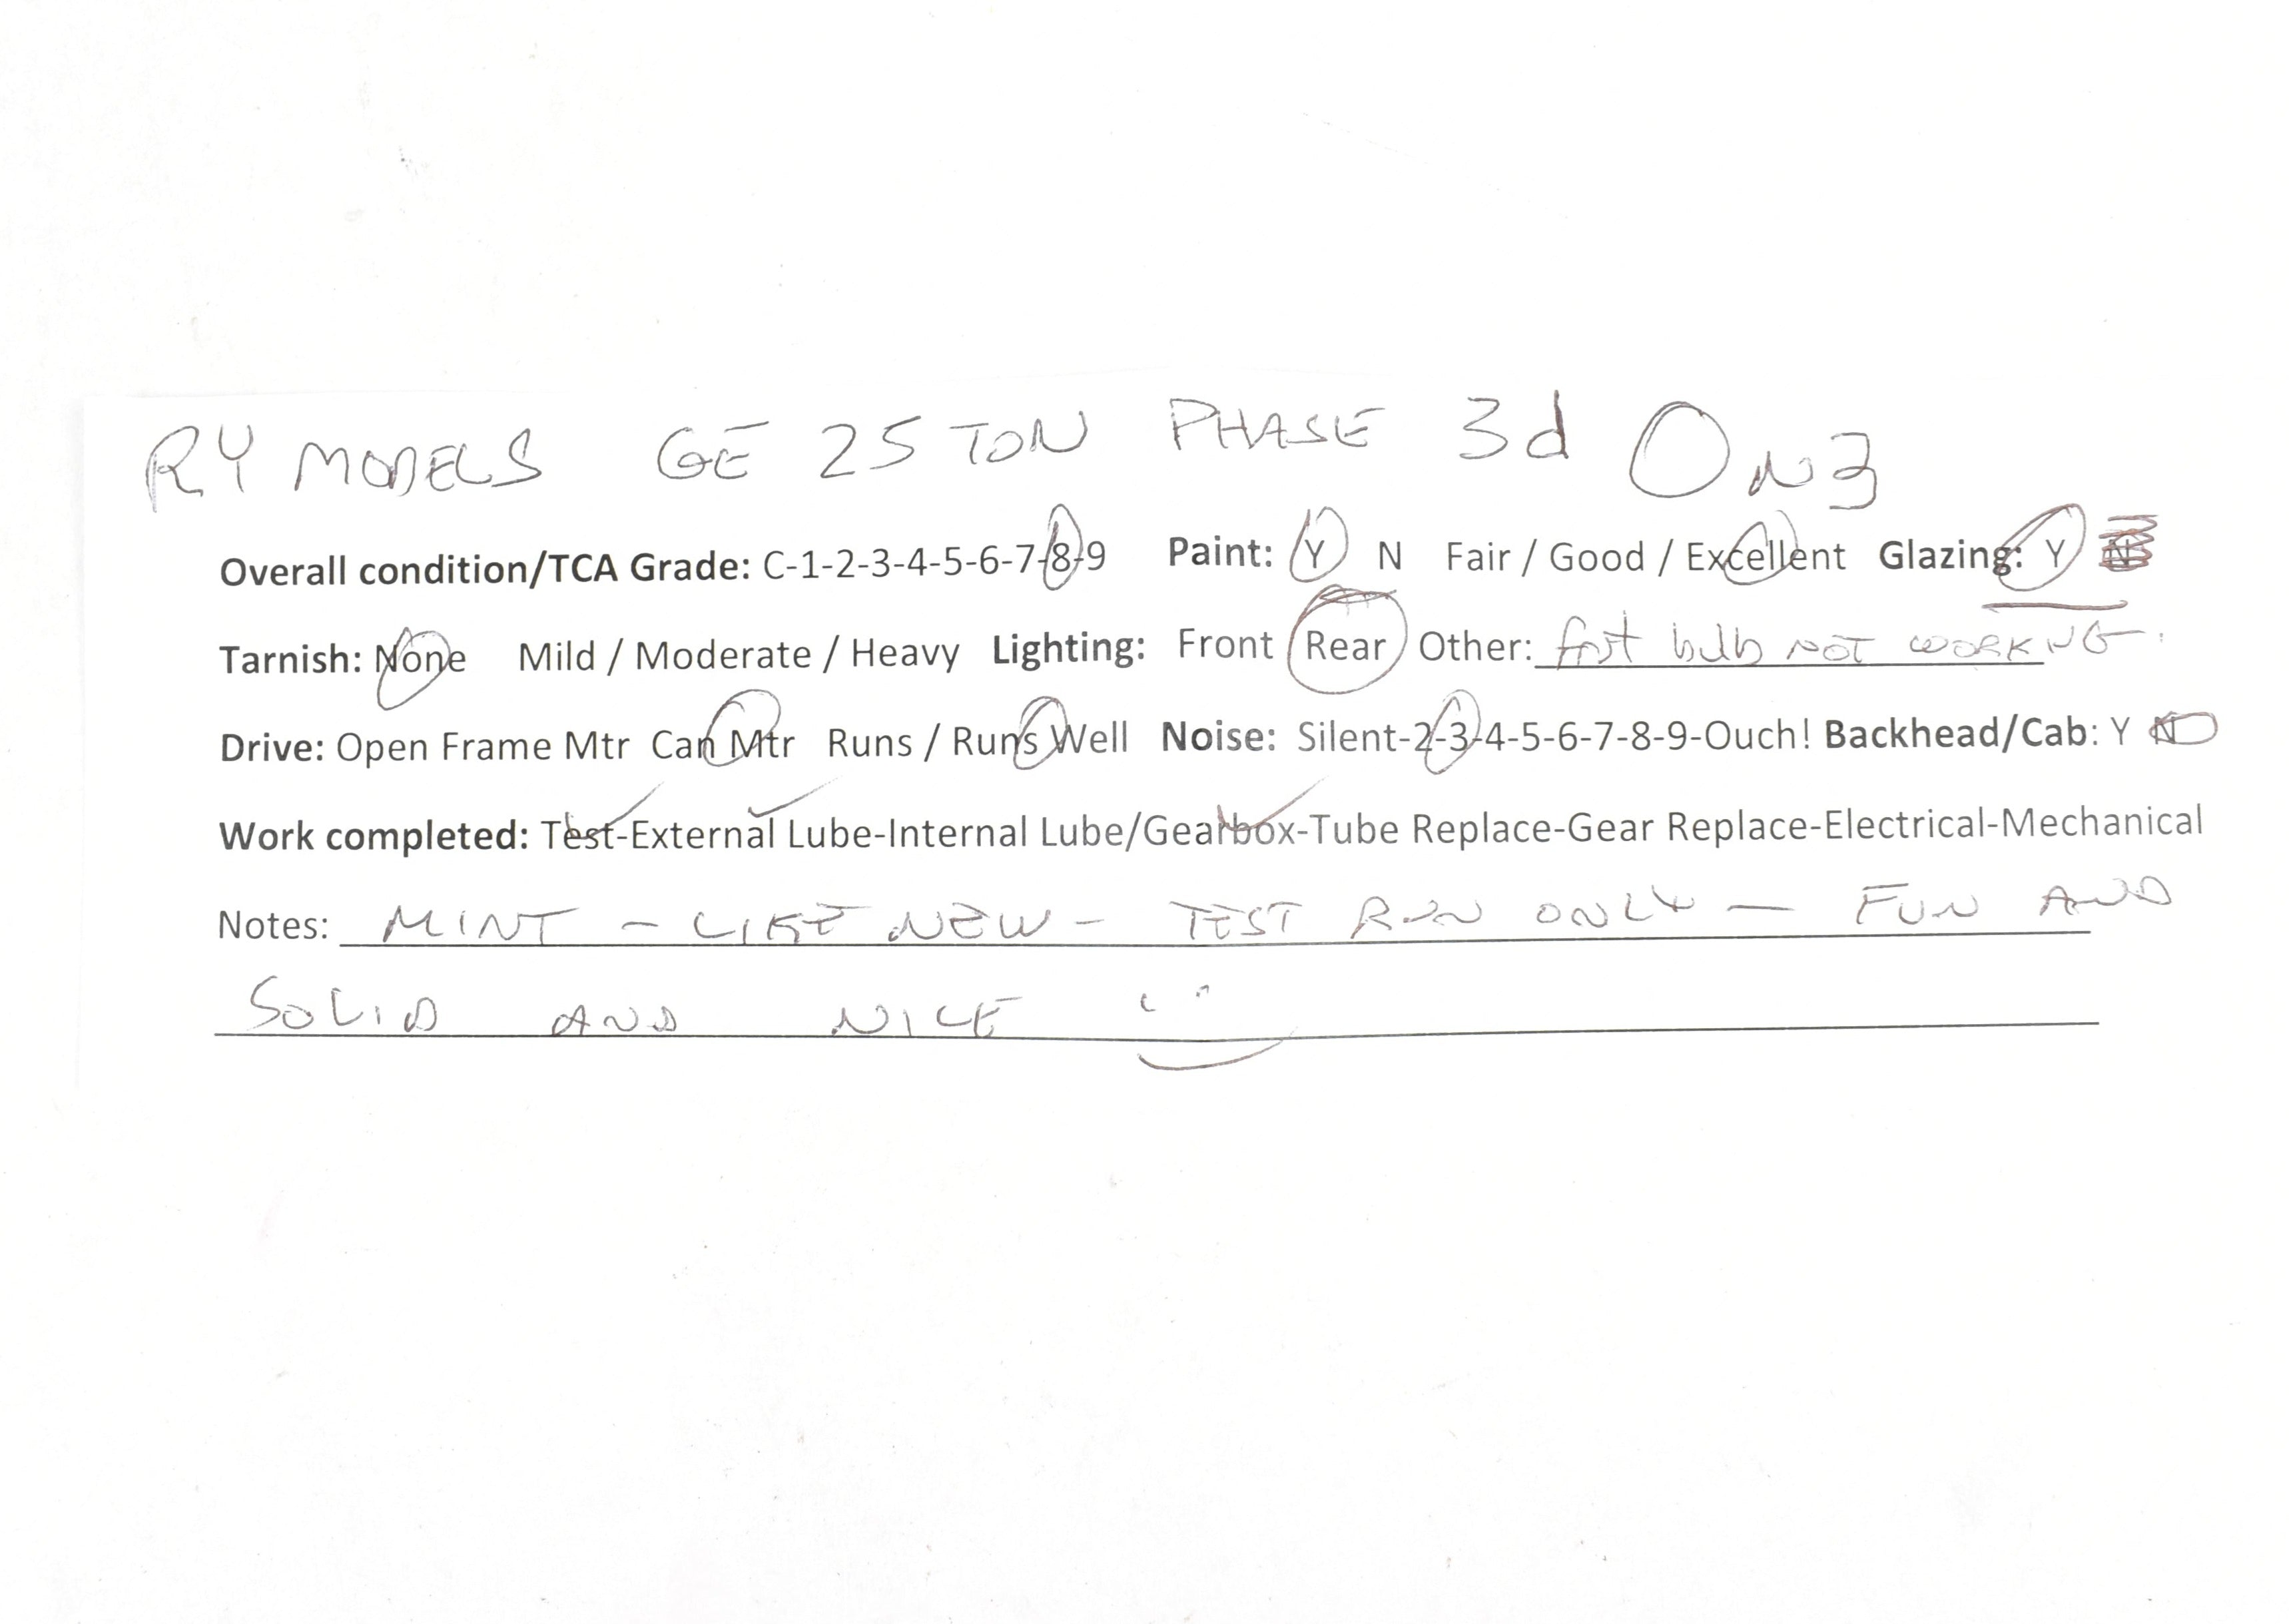 RY MODELS GE 25 TON PHASE 3d On3
Overall condition/TCA Grade: C-1-2-3-4-5-6-7-8-9 Paint: Y N Fair / Good / Excellent Glazing: Y N
Tarnish: None Mild / Moderate / Heavy Lighting: Front Rear Other: frnt bulb NOT WORKING.
Drive: Open Frame Mtr Can Mtr Runs / Runs Well Noise: Silent-2-3-4-5-6-7-8-9-Ouch! Backhead/Cab: Y N
Work completed: Test-External Lube-Internal Lube/Gearbox-Tube Replace-Gear Replace-Electrical-Mechanical
Notes: MINT - LIKE NEW - TEST RUN ONLY - FUN AND
SOLID AND NICE